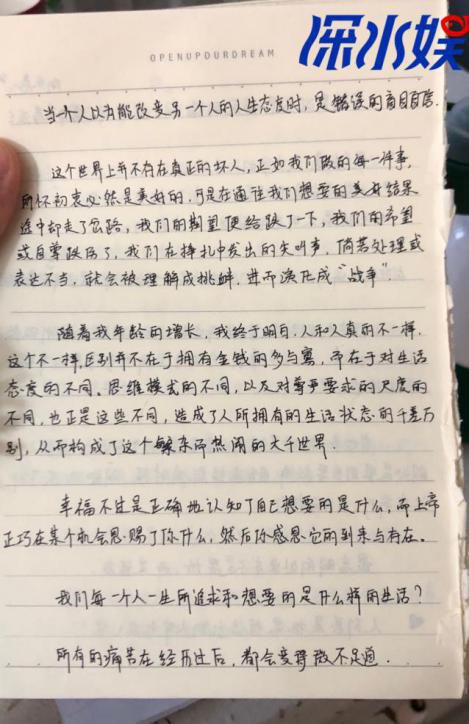 深水娱
OPENUPOURDREAM
当一个人以为能改变另一个人的人生态度时，是错误的盲目自信.
这个世界上并不存在真正的坏人，正如我们做的每一件事，
所怀初衷必然是美好的，可是在通往我们想要的美好结果
途中却走了岔路，我们的期望便给跌了一下，我们的希望
或自尊跌伤了，我们在挣扎中发出的尖叫声，倘若处理或
表达不当，就会被理解成挑衅，进而演化成“战争”.
随着我年龄的增长，我终于明白，人和人真的不一样，
这个不一样，区别并不在于拥有金钱的多与寡，而在于对生活
态度的不同、思维模式的不同，以及对尊严要求的尺度的
不同，也正是这些不同，造成了人所拥有的生活状态的千差万
别，从而构成了这个繁杂而热闹的大千世界.
幸福不过是正确地认知了自己想要的是什么，而上帝
正巧在某个机会恩赐了你什么，然后你感恩它的到来与存在。
我们每一个人一生所追求和想要的是什么样的生活？
所有的痛苦在经历过后，都会变得微不足道.